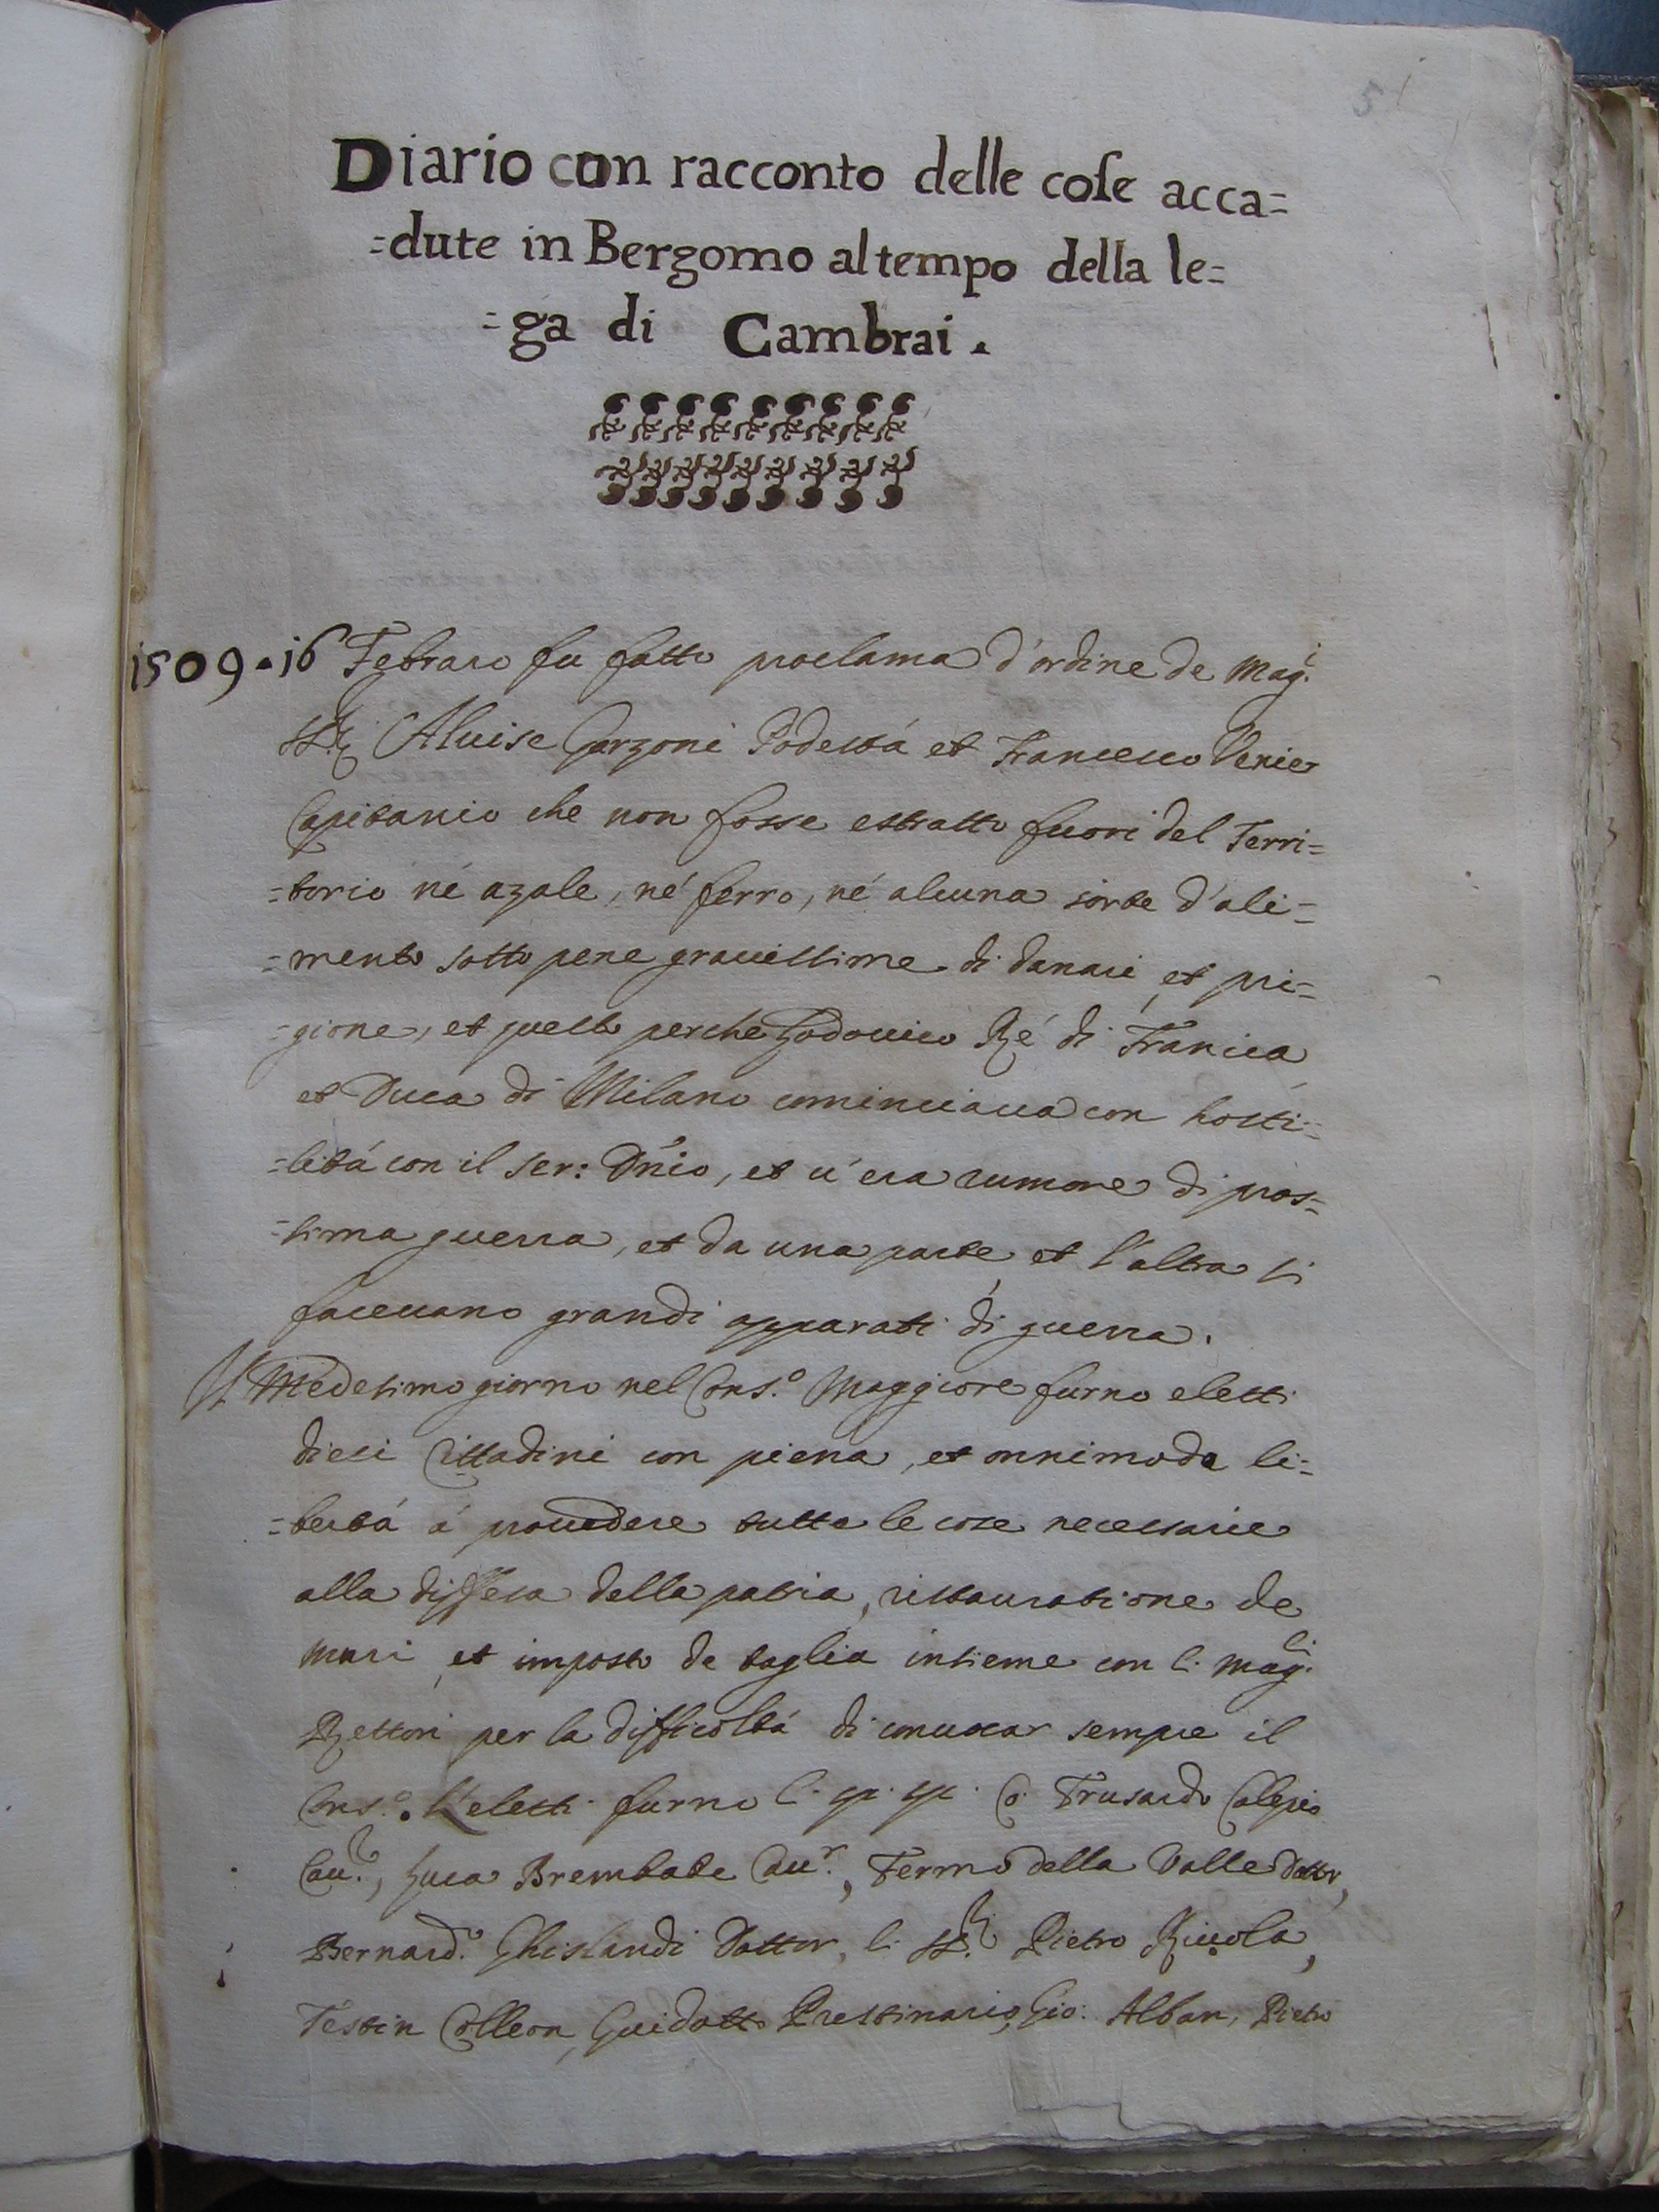 51
Diario con racconto delle cose acca=
=dute in Bergomo al tempo della le=
=ga di Cambrai.
1509. 16 Febraro fu fatto proclama d'ordine de Mag.i
SS.ri Aluise Garzoni Podestá et Francesco Venier
Capitanio che non fosse estratto fuori del Terri=
=torio né azale, né ferro, né alcuna sorte d'ali=
=mento sotto pene grauissime di danari et pri=
=gione, et questo perche Lodouico Ré di Francia
et Duca di Milano cominciaua con hosti=
=litá con il Ser: Dñio, et u'era rumore di pros=
=sima guerra, et da una parte et l'altra si
faceuano grandi apparati di guerra.
Il Medesimo giorno nel Cons.o Maggiore furno eletti
dieci Cittadini con piena, et onnimoda li=
=bertá á prouedere tutte le cose necessarie
alla diffesa della patria, ristauratione de
muri et imposto de taglia insieme con li Mag.ci
Rettori per la difficoltá di conuocar sempre il
Cons.o L'eletti furno li Co: Trusardo Calepio
Cau.r, Luca Brembate Cau.r, Fermo della Valle Dottor,
Bernard.o Ghislandi Dottor, li SS.ri Pietro Rizzola,
Testin Colleon, Guidotto Prestinario, Gio: Alban, Pietro